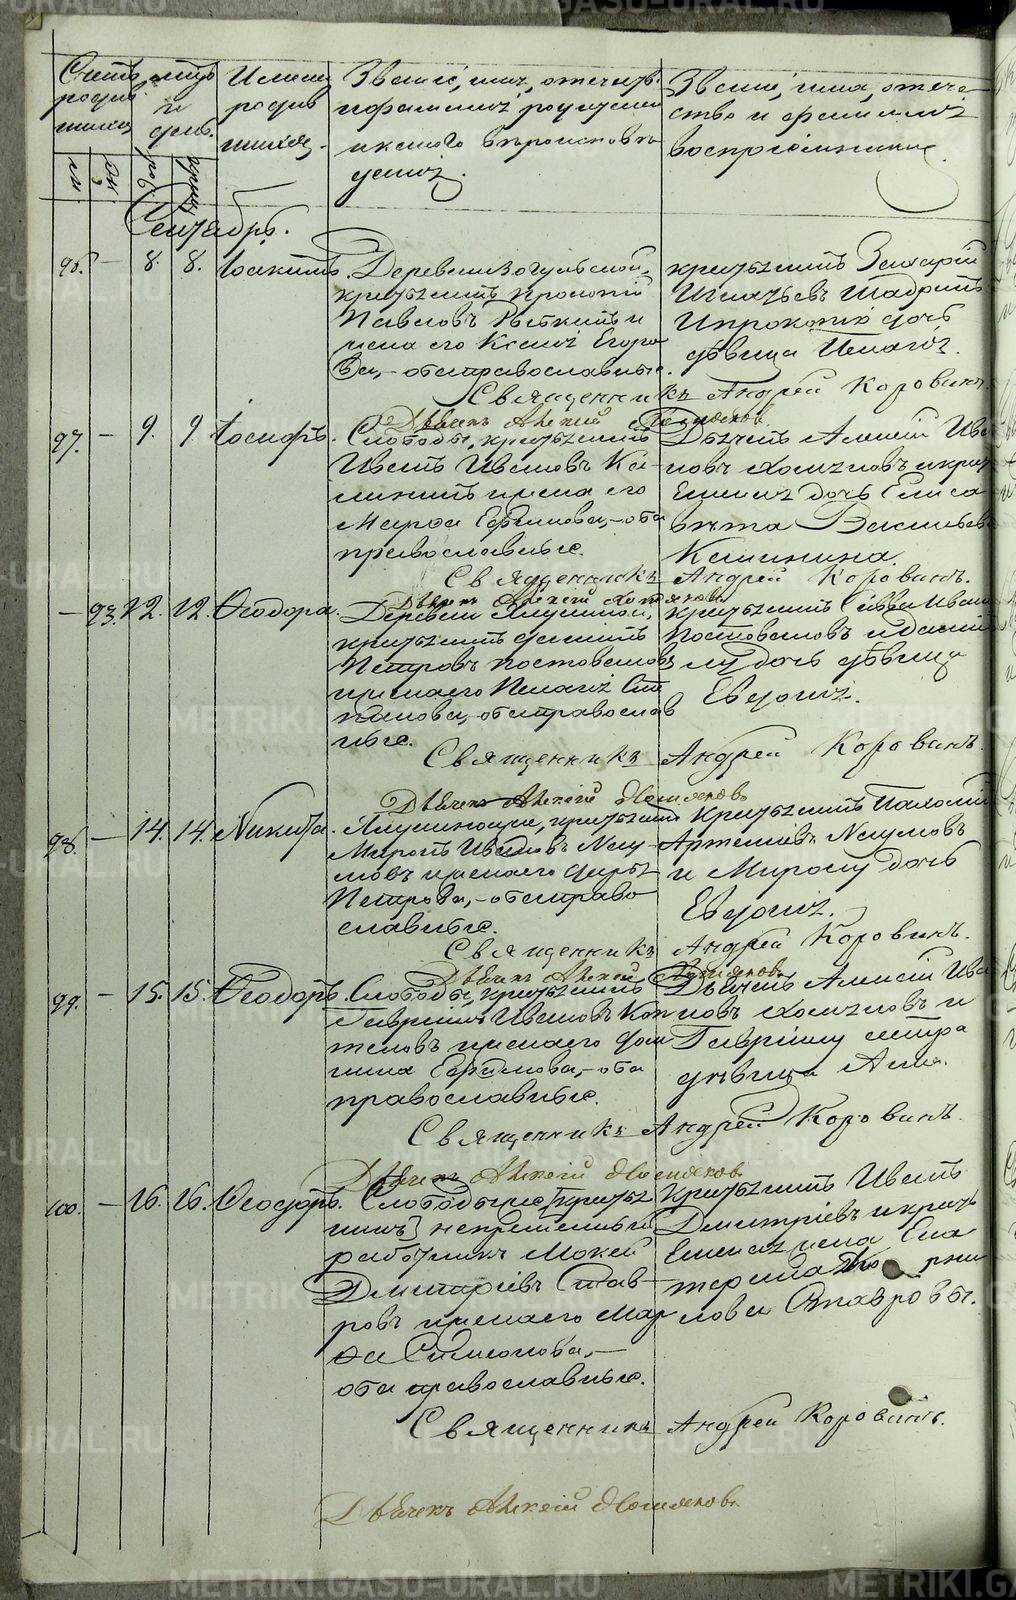 Счетъ родив шихся
м. ж.
м-цъ и день.
рож. крещ.
Имена родив шихся.
Званіе, имя, отчество
и фамилія родителей
и какого вѣроисповѣ
данія.
Званіе, имя, отче
ство и фамилія
воспріемниковъ.
Сентябрь.
96. — 8. 8. Іоакимъ.
Деревни Вогульской,
крестьянинъ Прокопій
Павловъ и
жена его Ксенія Егоро
ва, — оба православные.
крестьянинъ Захарій
Игнатьевъ
и Прокопія дочь
дѣвица Пелагія.
Священникъ Андрей Коровинъ.
Дьячекъ Алексій Хомяковъ
97. — 9. 9. Іосифъ.
Слободы, крестьянинъ
Иванъ Ивановъ Ка-
лининъ и жена его
Марѳа Ефимова, — оба
православные.
Дьячекъ Алексій Ива
новъ Хомяковъ и крес
дочь Елиса
вета Васильева
Калинина.
Священникъ Андрей Коровинъ.
Дьячекъ Алексій Хомяковъ
— 93. 12. 12. Ѳеодора.
Деревни
крестьянинъ Даніилъ
Петровъ Постоваловъ
и жена его Пелагія Сте
панова, — оба православ
ные.
крестьянинъ Савва Иван
Постоваловъ и Дани
лу дочь дѣвица
Евдокія.
Священникъ Андрей Коровинъ.
Дьячекъ Алексій Хомяковъ
98. — 14. 14. Никита.
крестьянинъ
Миронъ Ивановъ Нау-
мовъ и жена его Дарья
Петрова, — оба право
славные.
Крестьянинъ Пахомій
Артемьевъ Наумовъ
и Мирону дочь
Евдокія.
Священникъ Андрей Коровинъ.
Дьячекъ Алексій Хомяковъ
99. — 15. 15. Ѳеодоръ.
Слободы, крестьянинъ
Гавріилъ Ивановъ Коп
теловъ и жена его Дом
нина Ефимова, — оба
православные.
Дьячекъ Алексій Ива
новъ Хомяковъ и
Гавріилу сестра
дѣвица Анна.
Священникъ Андрей Коровинъ.
Дьячекъ Алексій Хомяковъ
100. — 16. 16. Ѳеодоръ.
Слободы [крестья
нинъ] непремѣнный
работникъ Мокей
Дмитріевъ Став-
ровъ и жена его Мар
ѳа Симонова, —
оба православные.
Крестьянинъ Иванъ
Дмитріевъ и крестья
жена Ека
терина
Ставровы.
Священникъ Андрей Коровинъ.
Дьячекъ Алексій Хомяковъ.
METRIKI.GASO-URAL.RU